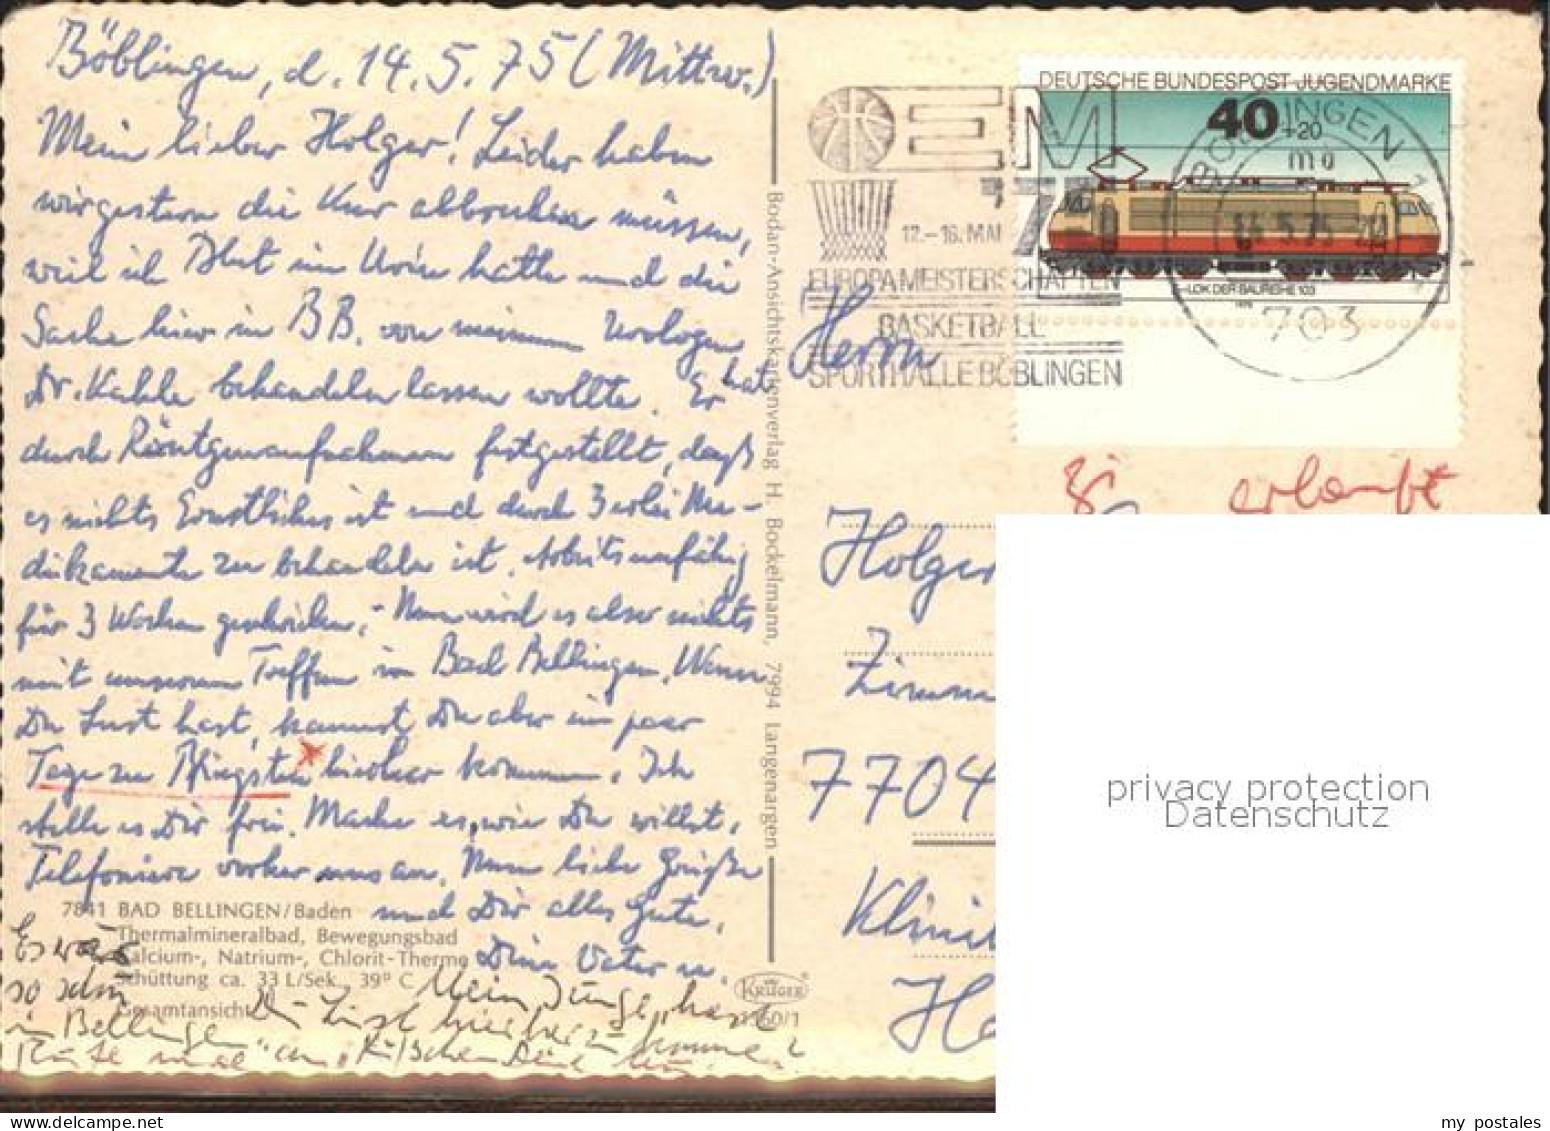 Böblingen, d. 14.5.75 (Mittw.)
Mein lieber Holger! Leider haben
wir gestern die Kur abbrechen müssen,
weil ich Blut im Urin hatte und die
Sache hier in BB. von meinem Urologen
Dr. Kahle behandeln lassen wollte. Er hat
durch Röntgenaufnahmen festgestellt, daß
es nichts Ernstliches ist und durch 3erlei Me-
dikamente zu behandeln ist. Arbeitsunfähig
für 3 Wochen geschrieben. - Nun wird es aber nichts
mit unserem Treffen in Bad Bellingen. Wenn
Du Lust hast, kannst Du aber ein paar
Tage zu Pfingsten hierher kommen. Ich
stelle es Dir frei. Mache es, wie Du willst.
Telefoniere vorher uns an. Nun liebe Grüße
und Dir alles Gute.
Dein Vater u.
7841 BAD BELLINGEN/Baden
Thermalmineralbad, Bewegungsbad
Calcium-, Natrium-, Chlorit-Therme
Schüttung ca. 33 L/Sek., 39° C
Gesamtansicht
Es wäre
so schön
in Bellingen
Mein Junge, hast
Du Lust hierher zu kommen?
Bodan-Ansichtskartenverlag H. Bockelmann, 7994 Langenargen
KRÜGER
1360/1
DEUTSCHE BUNDESPOST JUGENDMARKE
40 +20
LOK DER BAUREIHE 103
1975
BÖBLINGEN 1
mü
14.5.75
703
EM '75
12.-16. MAI
EUROPAMEISTERSCHAFTEN
BASKETBALL
SPORTHALLE BÖBLINGEN
Herrn
erlaubt
Holger
Zimm
7704
Klini
He
privacy protection
Datenschutz
my postales